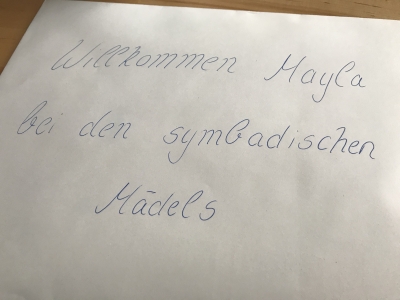 Willkommen Mayla
bei den symbadischen
Mädels